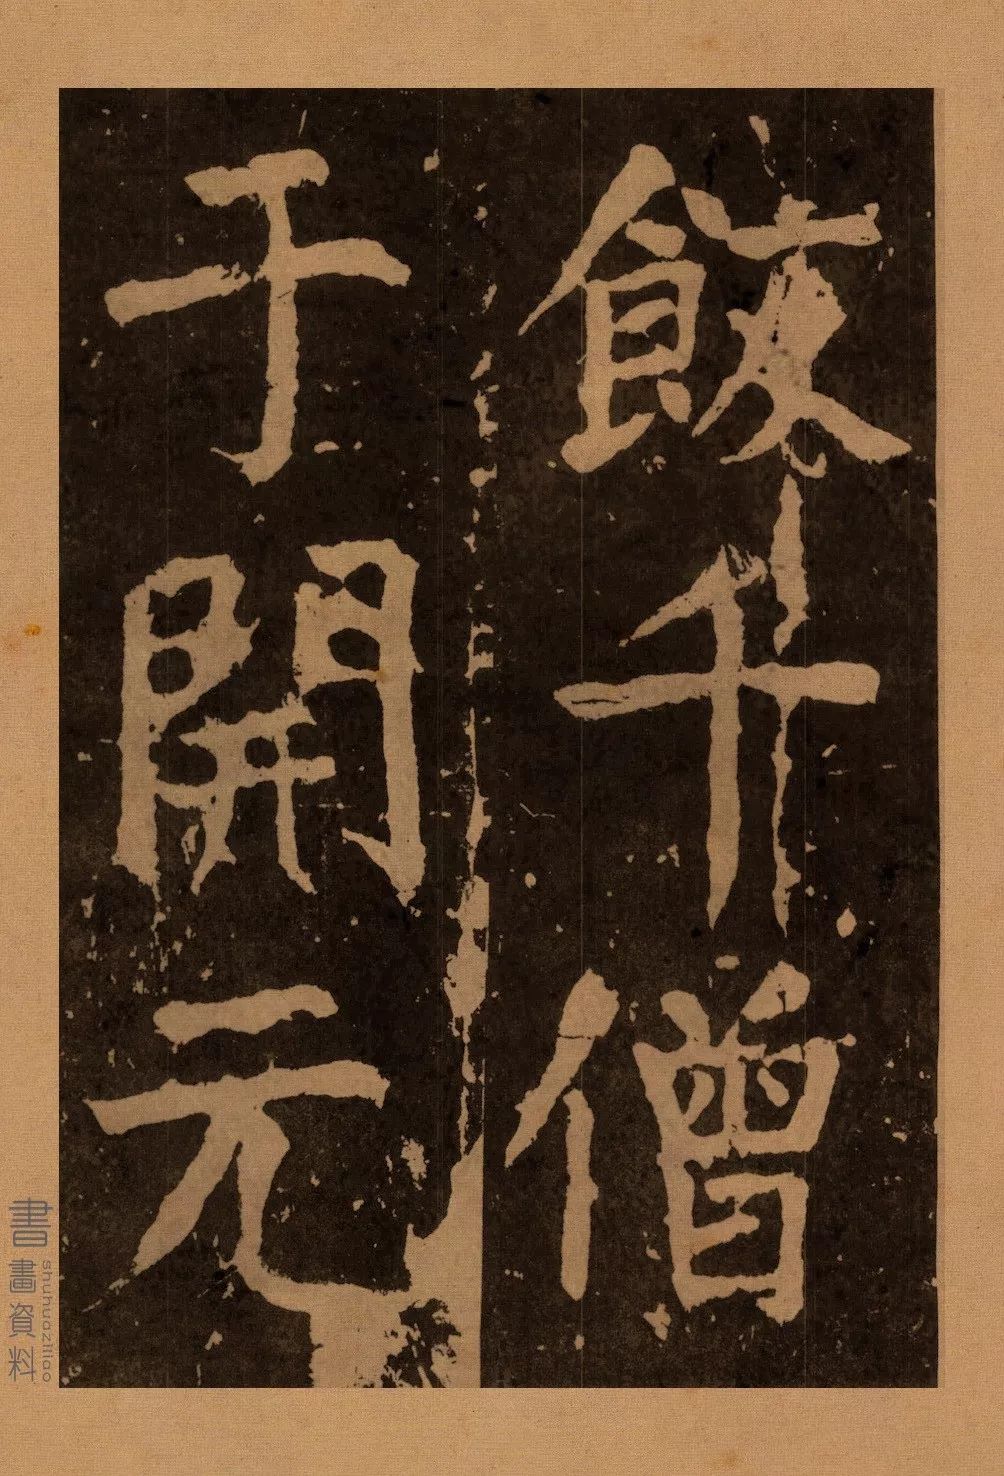 飯千僧
于開元
書畫資料
shuhuaziliao